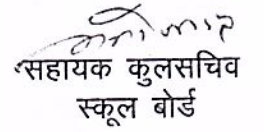 सहायक कुलसचिव
स्कूल बोर्ड